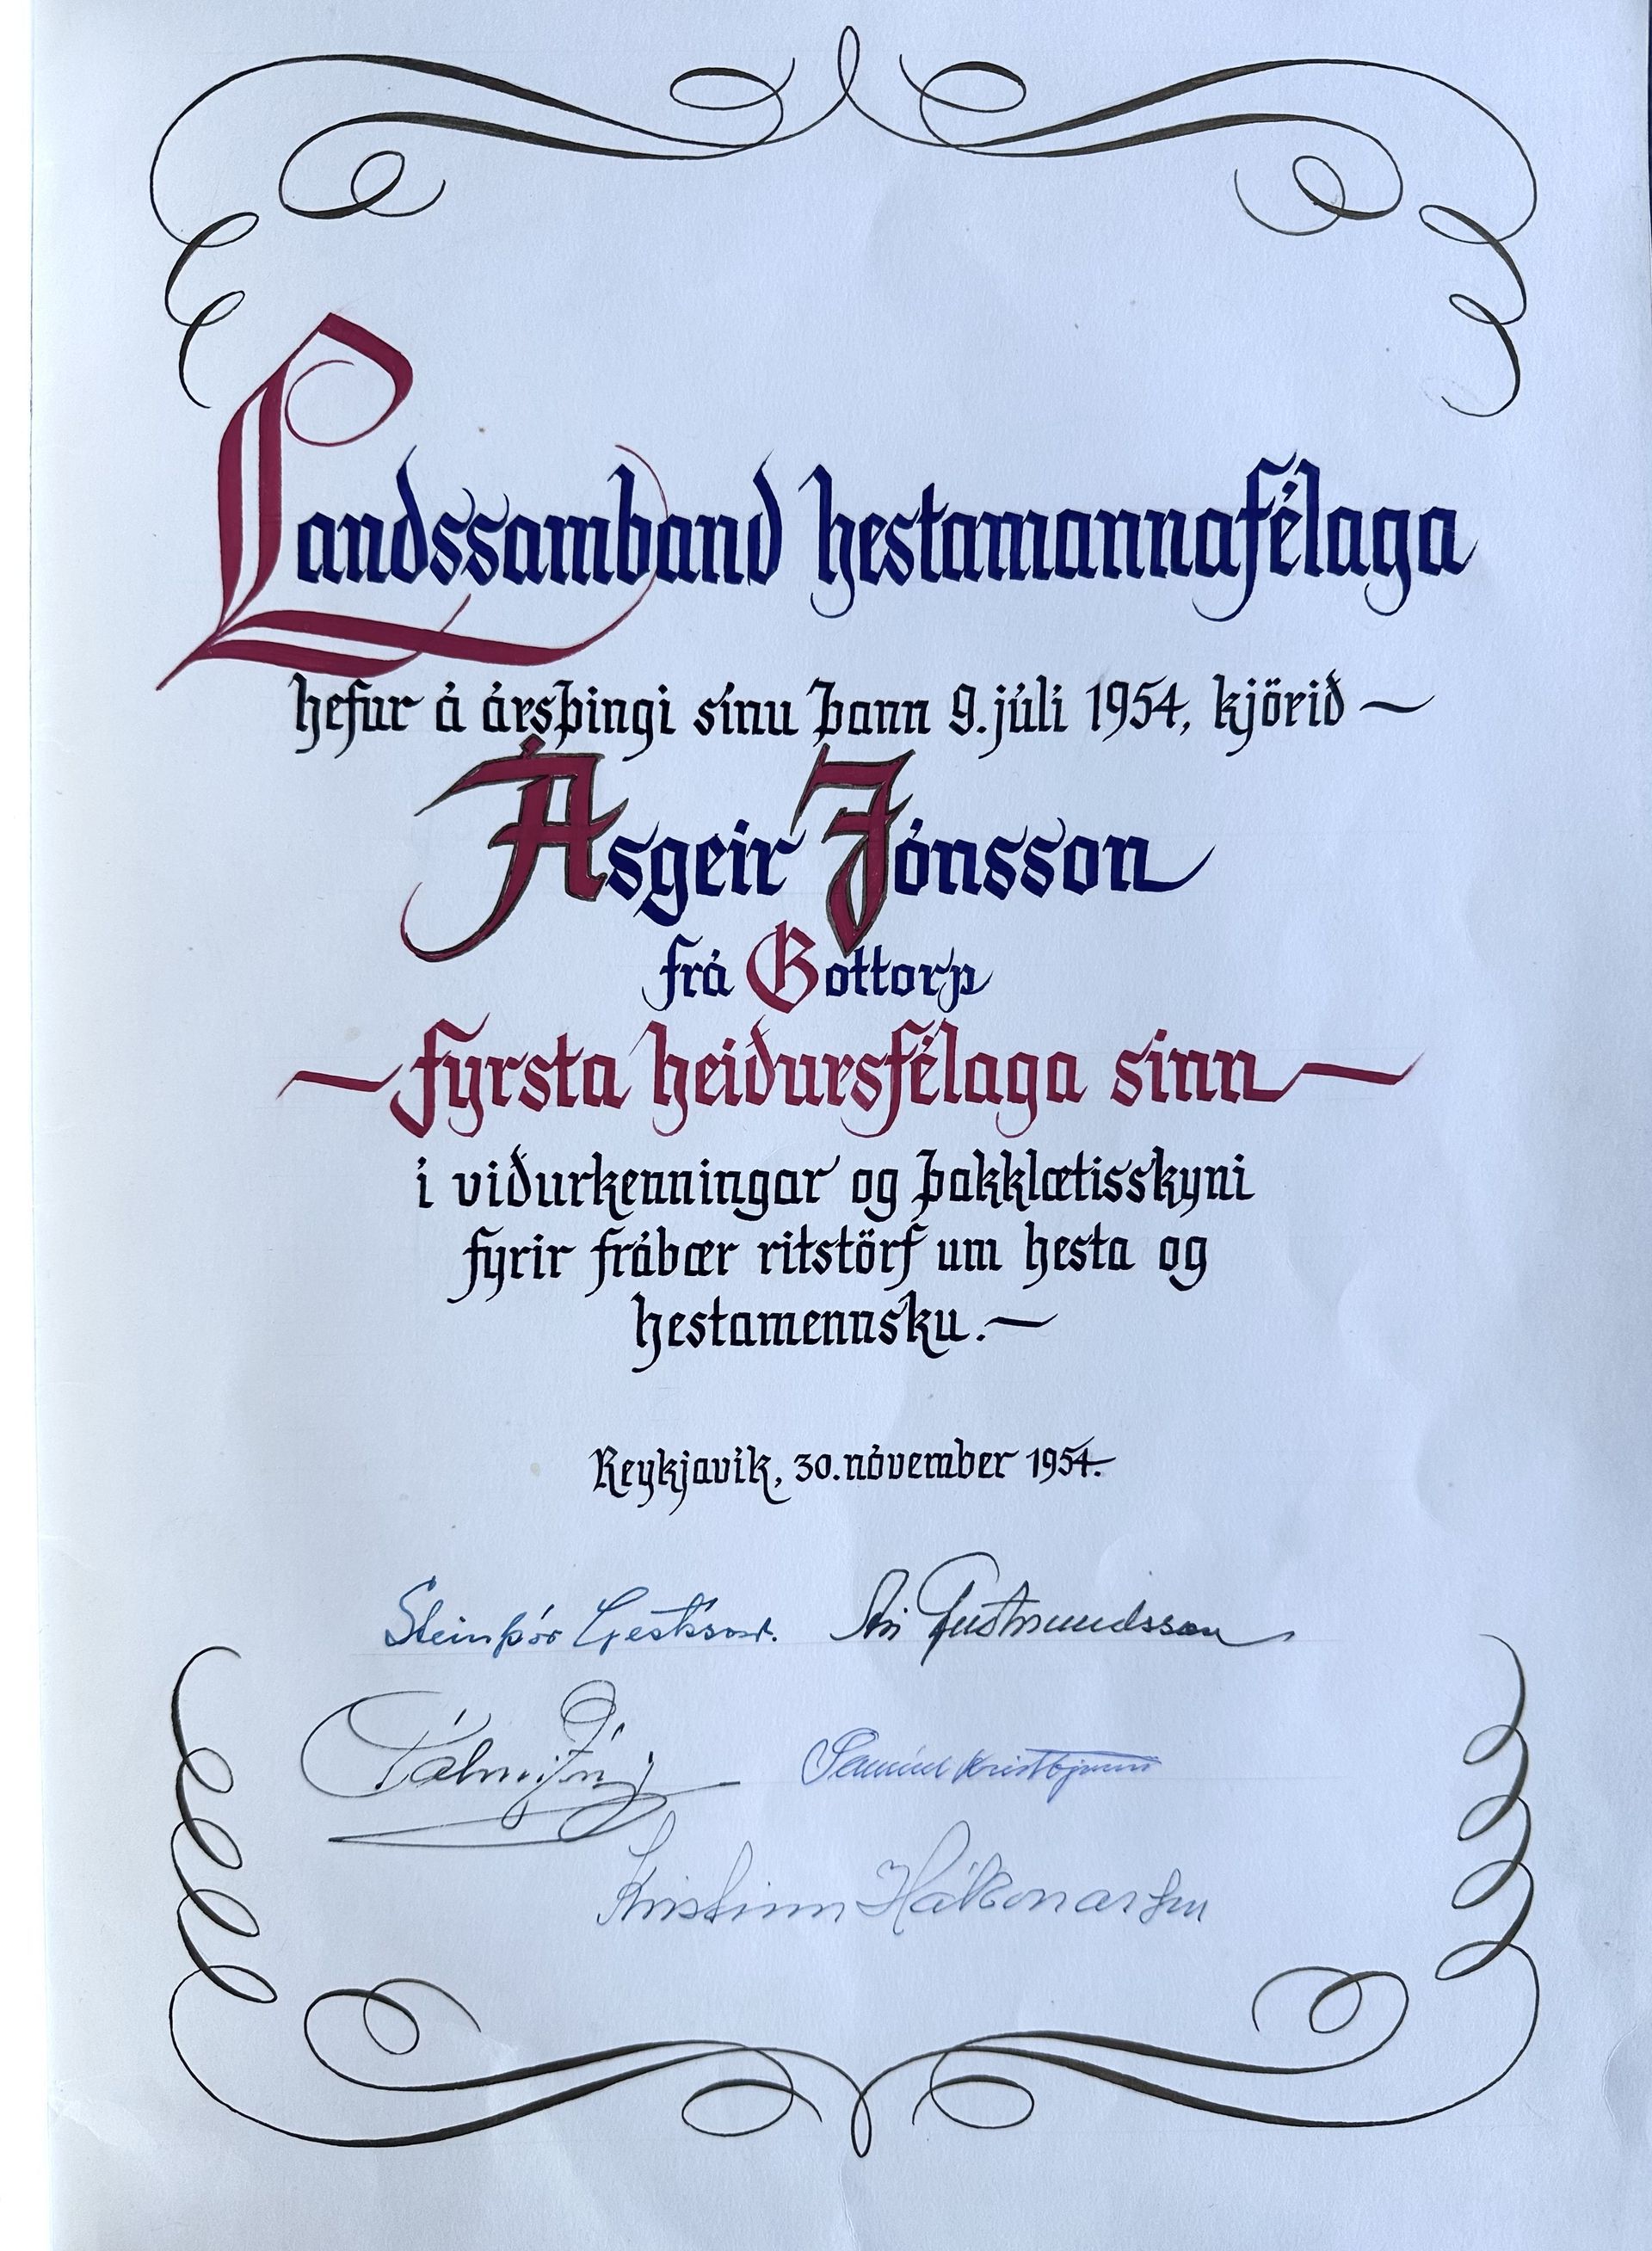 Landssamband hestamannafélaga
hefur á ársþingi sínu þann 9. júlí 1954, kjörið —
Ásgeir Jónsson
frá Gottorp
— fyrsta heiðursfélaga sinn —
í viðurkenningar og þakklætisskyni
fyrir frábær ritstörf um hesta og
hestamennsku. —
Reykjavík, 30. nóvember 1954.
Steinþór Gestsson. Ari Guðmundsson
Pálmi Jónss
Kristinn Hákonarson